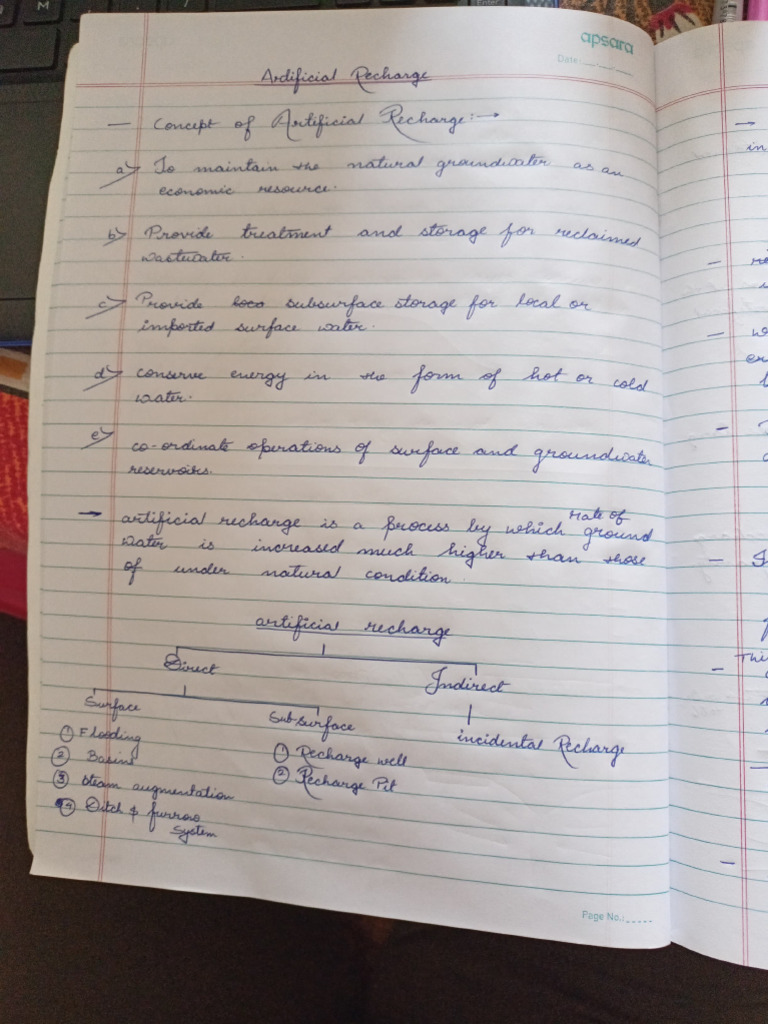 apsara
Date:
Artificial Recharge
— Concept of Artificial Recharge:→
a> To maintain the natural groundwater as an
economic resource.
b> Provide treatment and storage for reclaimed
wastewater.
c> Provide loca subsurface storage for local or
imported surface water.
d> conserve energy in the form of hot or cold
water.
e> co-ordinate operations of surface and groundwater
reservoirs.
rate of
→ artificial recharge is a process by which ground
water is increased much higher than those
of under natural condition.
artificial recharge
Direct Indirect
Surface Subsurface incidental Recharge
① Flooding ① Recharge well
② Basins ② Recharge Pit
③ Steam augmentation
④ Ditch & furrow
System
Page No.:
→
in
—
—
—
—
— Thi
—